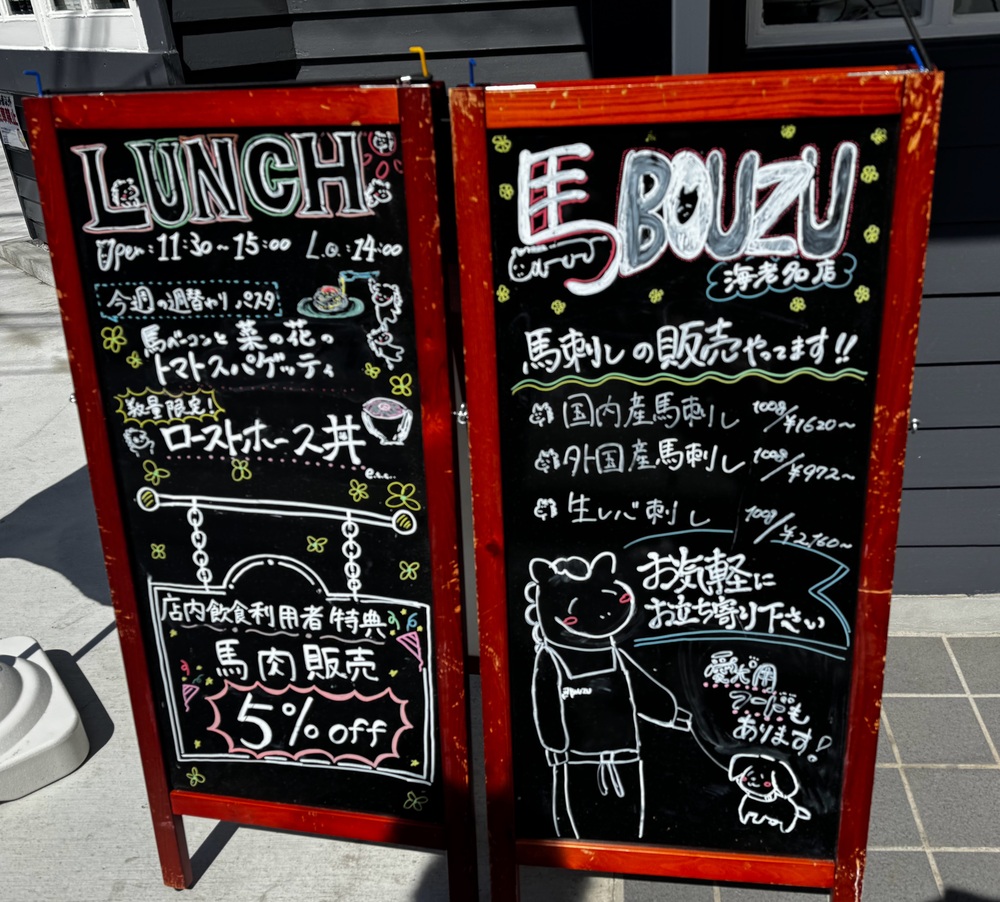 LUNCH
Open:11:30~15:00 L.o.:14:00
今週の週替わりパスタ
馬ベーコンと菜の花の
トマトスパゲッティ
数量限定!
ローストホース丼
etc...
店内飲食利用者特典
馬肉販売
5%off
馬BOUZU
海老名店
馬刺しの販売やってます!!
国内産馬刺し 100g/¥1620~
外国産馬刺し 100g/¥972~
生レバ刺し 100g/¥2,160~
お気軽に
お立ち寄り下さい
愛犬用
フードも
あります!